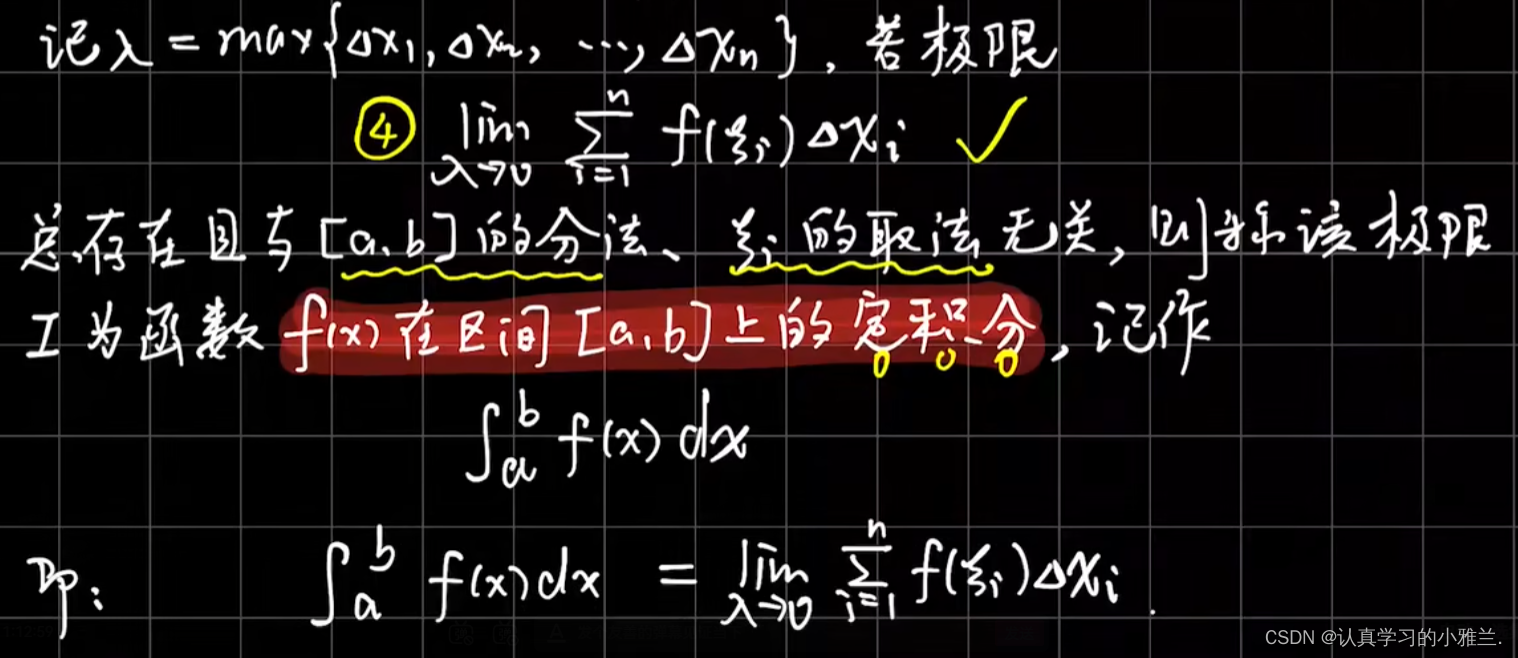 记λ=max{Δx₁,Δx₂, …,Δxₙ}, 若极限
④ lim_{λ→0} ∑_{i=1}^{n} f(ξᵢ)Δxᵢ ✓
总存在且与[a,b]的分法、ξᵢ的取法无关, 则称该极限
I为函数f(x)在区间[a,b]上的定积分, 记作
∫ₐᵇ f(x)dx
即: ∫ₐᵇ f(x)dx = lim_{λ→0} ∑_{i=1}^{n} f(ξᵢ)Δxᵢ.
CSDN @认真学习的小雅兰.